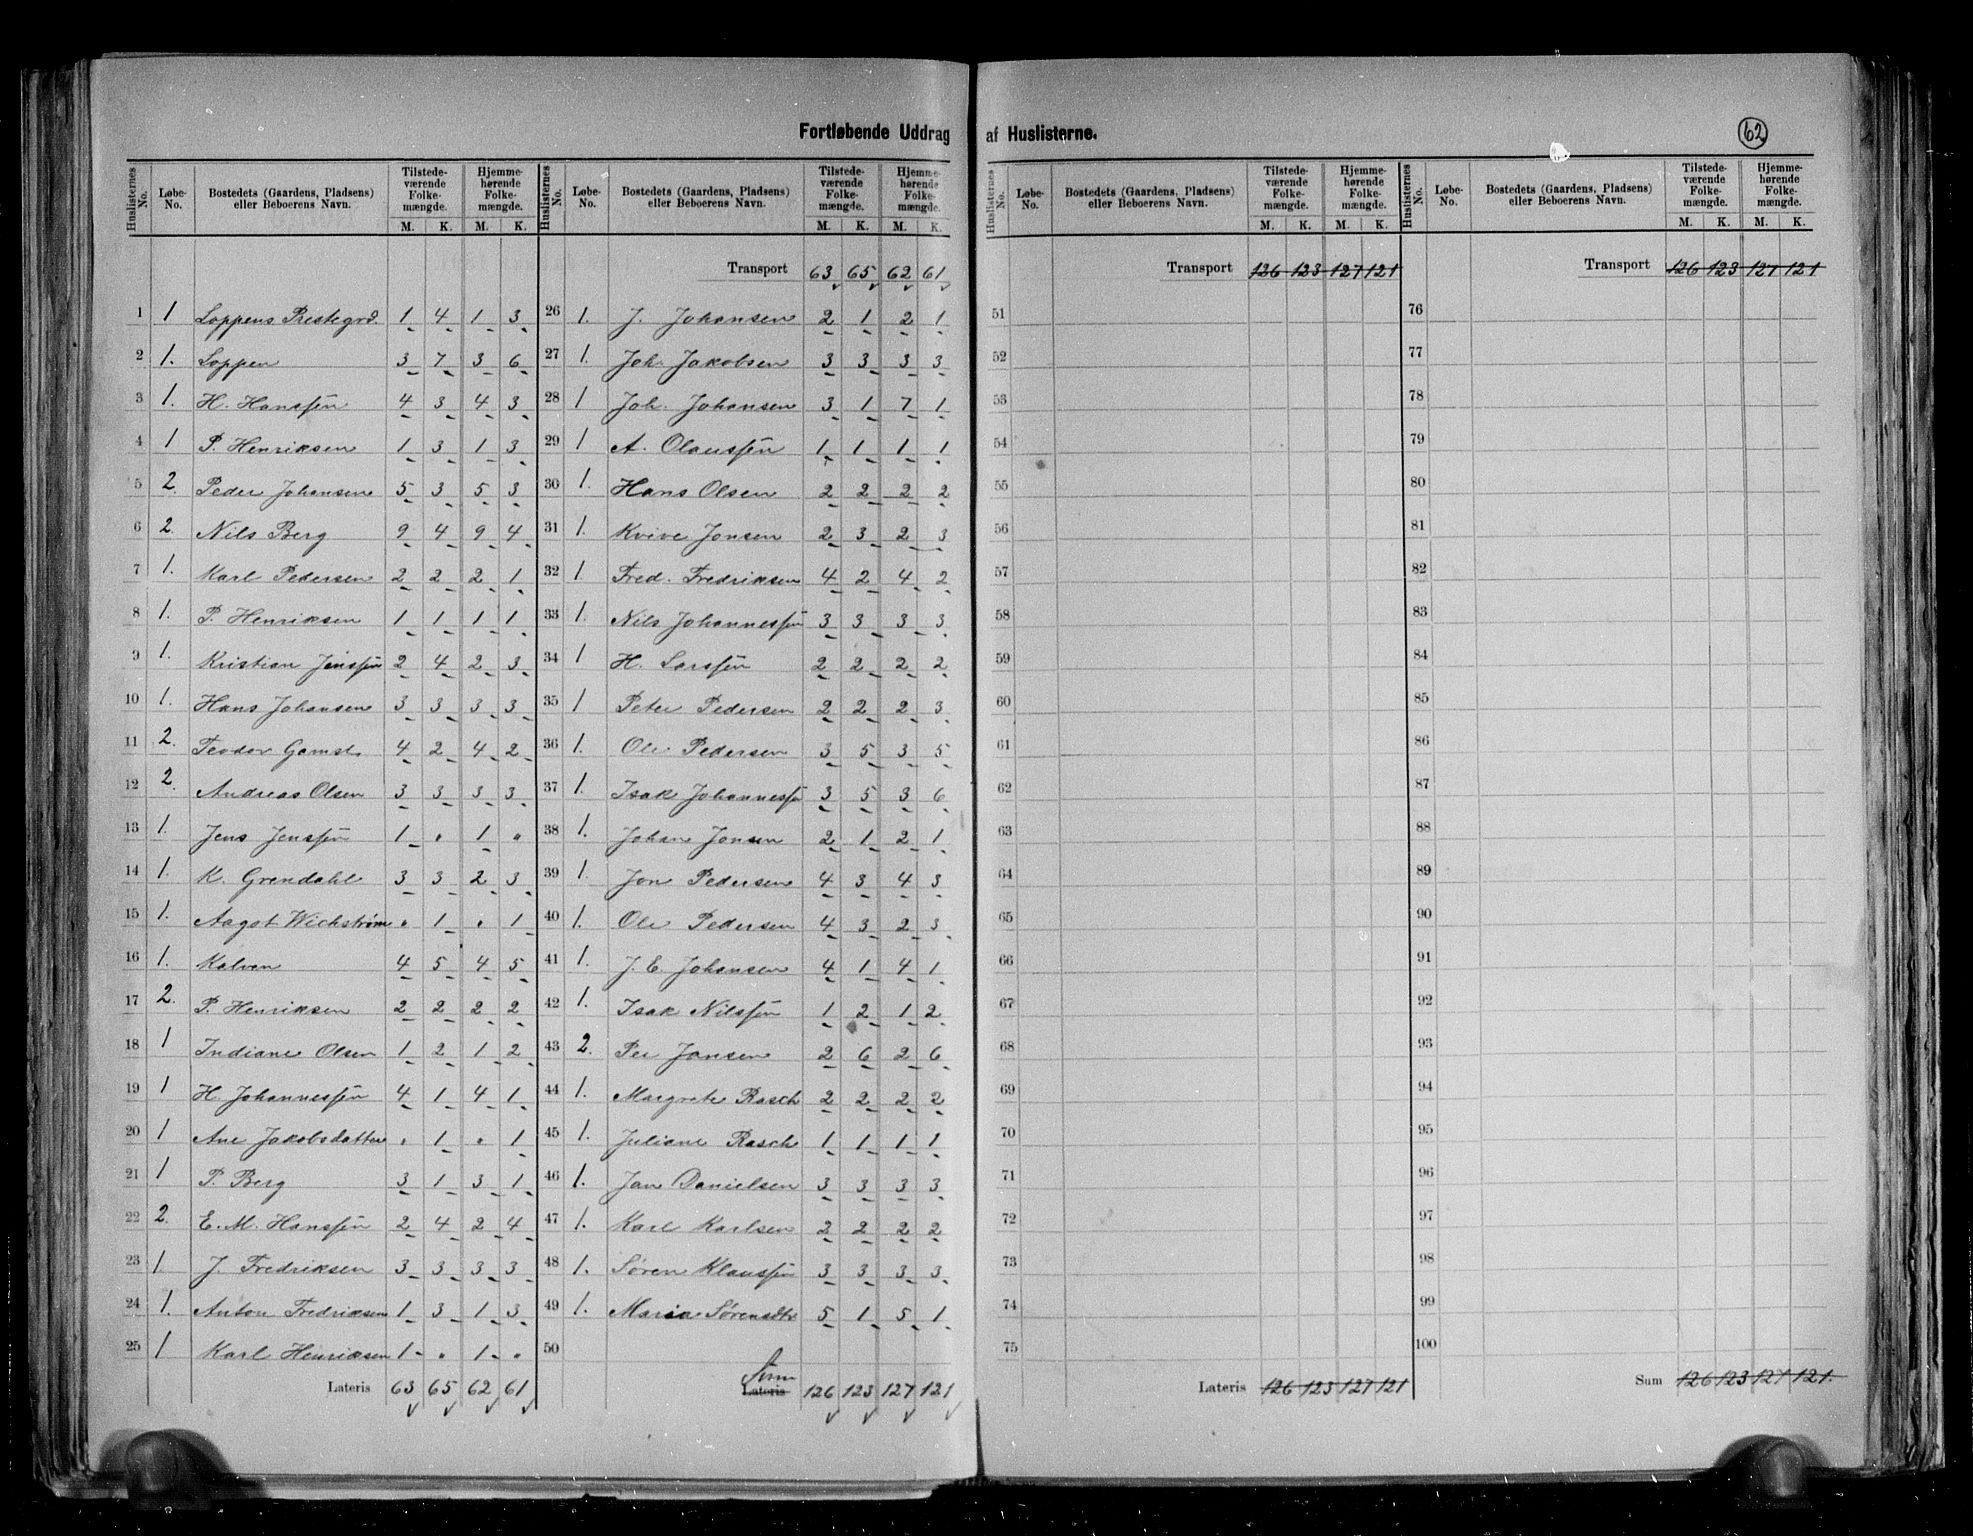 Fortløbende Uddrag af Huslisterne.
62
Huslisternes No. Løbe-No. Bostedets (Gaardens, Pladsens) eller Beboerens Navn. Tilstedeværende Folkemængde. M. K. Hjemmehørende Folkemængde. M. K.
1 1 Loppens Prestegrd. 1 4 1 3
2 1. Loppen 3 7 3 6
3 1. H. Hanssen 4 3 4 3
4 1 P. Henriksen 1 3 1 3
5 2. Peder Johansen 5 3 5 3
6 2. Nils Berg 9 4 9 4
7 1. Karl Pedersen 2 2 2 1
8 1. P. Henriksen 1 1 1 1
9 1. Kristian Jenssen 2 4 2 3
10 1. Hans Johansen 3 3 3 3
11 2. Teodor Gamst. 4 2 4 2
12 2. Andreas Olsen 3 3 3 3
13 1. Jens Jenssen 1 " 1 "
14 1. K. Grendahl 3 3 2 3
15 1. Aagot Wichstrøm " 1 " 1
16 1. Kalven 4 5 4 5
17 2. P. Henriksen 2 2 2 2
18 1 Indiane Olsen 1 2 1 2
19 1 H. Johannessen 4 1 4 1
20 1 Ane Jakobsdatter " 1 " 1
21 1 P. Berg 3 1 3 1
22 2. E. M. Hanssen 2 4 2 4
23 1. J. Fredriksen 3 3 3 3
24 1. Anton Fredriksen 1 3 1 3
25 1 Karl Henriksen 1 " 1 "
Lateris 63 65 62 61
Huslisternes No. Løbe-No. Bostedets (Gaardens, Pladsens) eller Beboerens Navn. Tilstedeværende Folkemængde. M. K. Hjemmehørende Folkemængde. M. K.
Transport 63 65 62 61
26 1. J. Johansen 2 1 2 1
27 1. Joh. Jakobsen 3 3 3 3
28 1 Joh. Johansen 3 1 7 1
29 1 A. Olaussen 1 1 1 1
30 1. Hans Olsen 2 2 2 2
31 1. Kvive Jonsen 2 3 2 3
32 1. Fred. Fredriksen 4 2 4 2
33 1. Nils Johannessen 3 3 3 3
34 1 H. Larssen 2 2 2 2
35 1 Peter Pedersen 2 2 2 3
36 1. Ole Pedersen 3 5 3 5
37 1. Isak Johannessen 3 5 3 6
38 1. Johan Jonsen 2 1 2 1
39 1. Jon Pedersen 4 3 4 3
40 1. Ole Pedersen 4 3 2 3
41 1. J. E. Johansen 4 1 4 1
42 1. Isak Nilssen 1 2 1 2
43 2. Per Jansen 2 6 2 6
44 1. Margrete Rasch 2 2 2 2
45 1. Juliane Rasch 1 1 1 1
46 1. Jan Danielsen 3 3 3 3
47 1. Karl Karlsen 2 2 2 2
48 1. Søren Klaussen 3 3 3 3
49 1. Maria Sørensdtr 5 1 5 1
50
Sum
Lateris 126 123 127 121
Huslisternes No. Løbe-No. Bostedets (Gaardens, Pladsens) eller Beboerens Navn. Tilstedeværende Folkemængde. M. K. Hjemmehørende Folkemængde. M. K.
Transport 126 123 127 121
51
52
53
54
55
56
57
58
59
60
61
62
63
64
65
66
67
68
69
70
71
72
73
74
75
Lateris 126 123 127 121
Huslisternes No. Løbe-No. Bostedets (Gaardens, Pladsens) eller Beboerens Navn. Tilstedeværende Folkemængde. M. K. Hjemmehørende Folkemængde. M. K.
Transport 126 123 127 121
76
77
78
79
80
81
82
83
84
85
86
87
88
89
90
91
92
93
94
95
96
97
98
99
100
Sum 126 123 127 121.